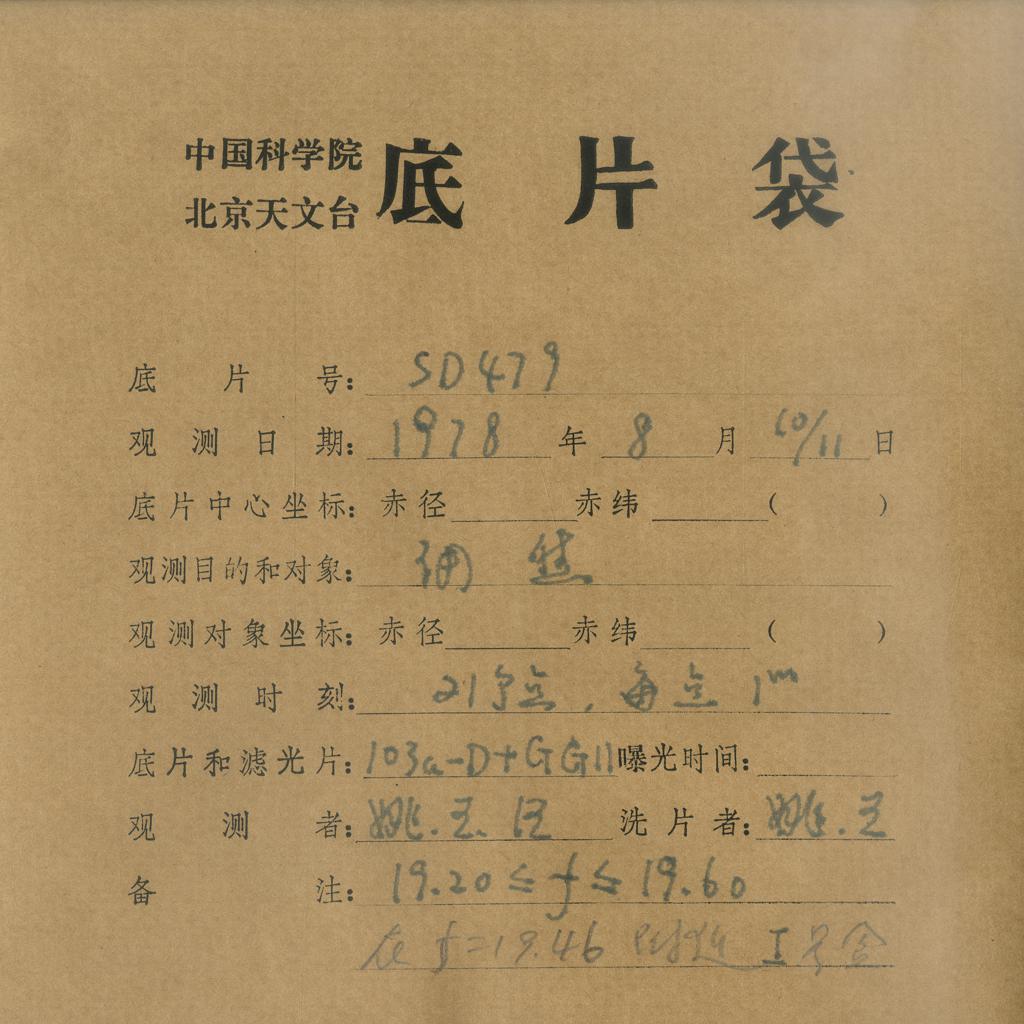 中国科学院
北京天文台
底片袋
底片号: SD479
观测日期: 1978年8月10/11日
底片中心坐标: 赤径 赤纬 ( )
观测目的和对象: 调焦
观测对象坐标: 赤径 赤纬 ( )
观测时刻: 21 点, 每点 1m
底片和滤光片: 103a-D+GG11 曝光时间:
观测者: 姚.王. 洗片者: 姚.王
备注: 19.20 ≤ f ≤ 19.60
在 f=19.46 附近